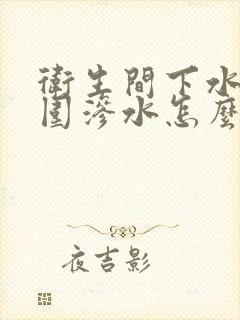 衛生間下水
圍滲水怎麼
夜吉影